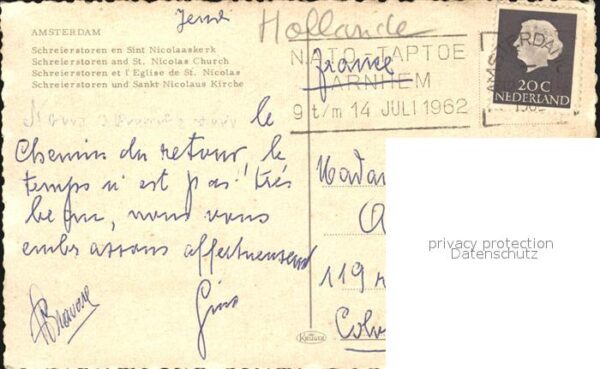 Hollande
AMSTERDAM
Schreierstoren en Sint Nicolaaskerk
Schreierstoren and St. Nicolas Church
Schreierstoren et l'Eglise de St. Nicolas
Schreierstoren und Sankt Nikolaus Kirche
N.A.T.O.-TAPTOE
ARNHEM
9 t/m 14 JULI 1962
AMSTERDAM
20 C
NEDERLAND
france
Nous sommes sur le
Chemin du retour, le
temps n'est pas très
beau, nous vous
embrassons affectueusement
Gino
Madam
119
Colo
KRÜGER
privacy protection
Datenschutz